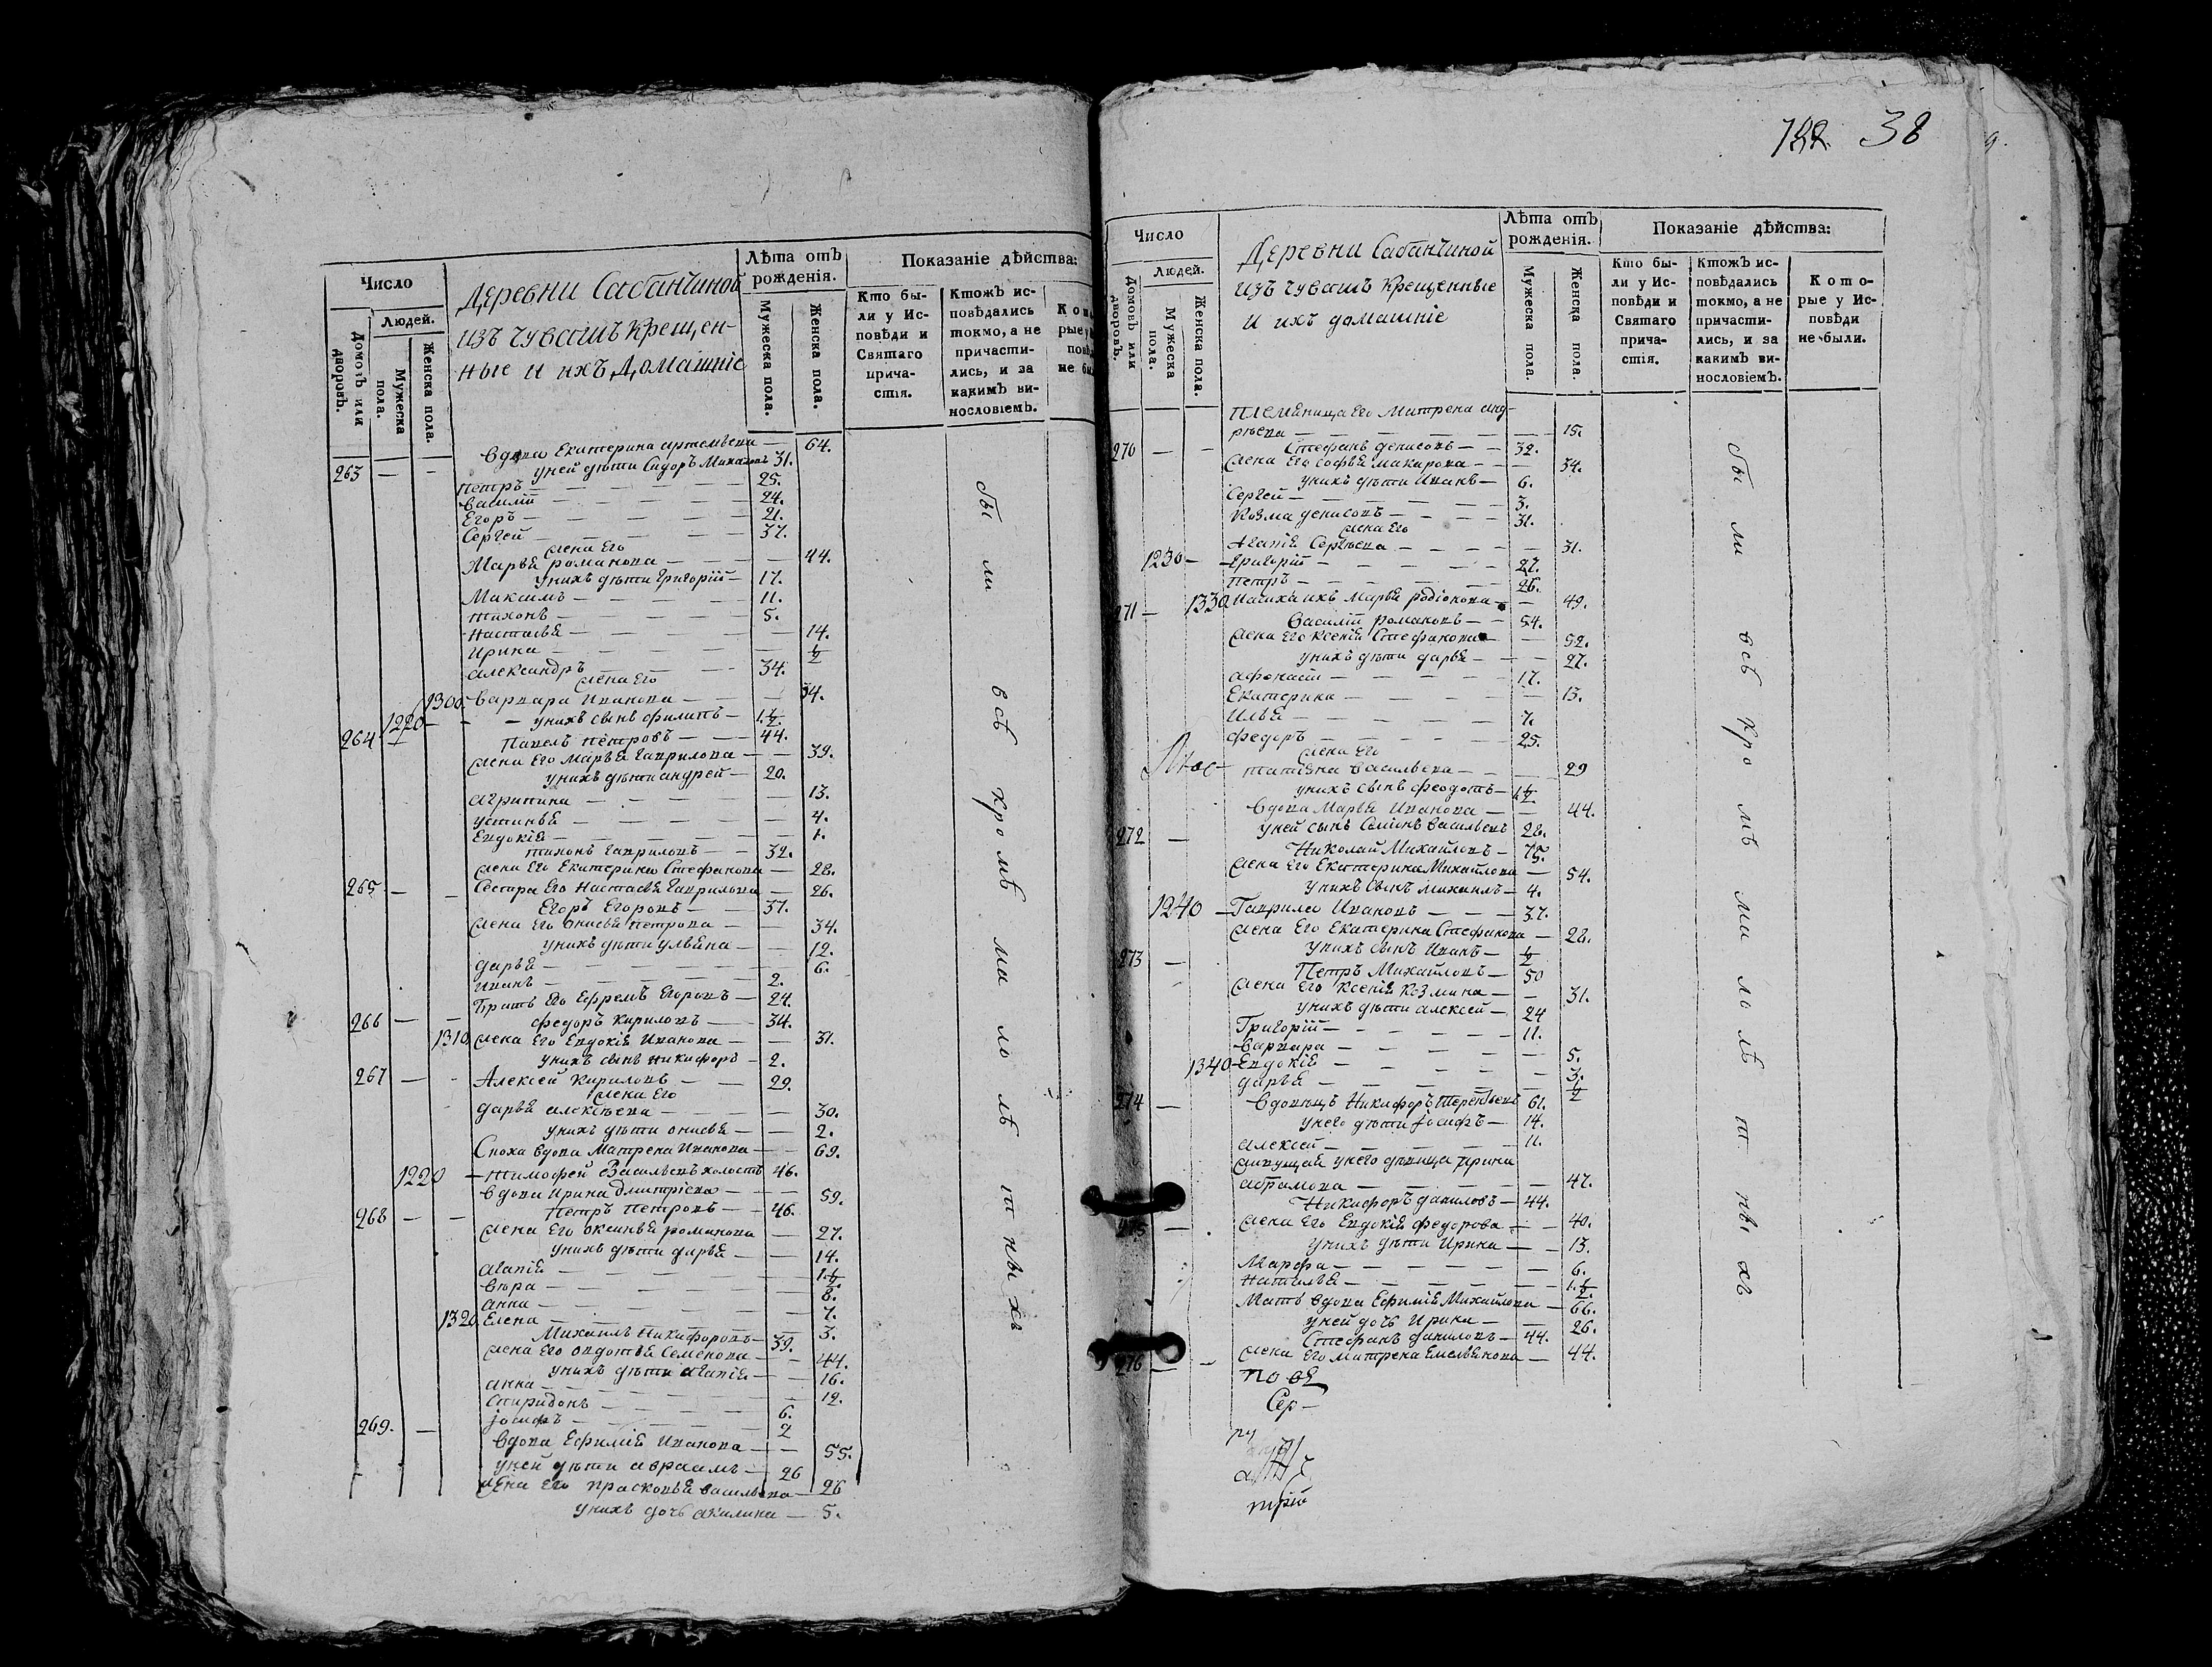 Число
Людей.
Домовъ или дворовъ.
Мужеска пола.
Женска пола.
Деревни Сабанчиной
изъ чувашъ крещен-
ные и ихъ домашніе
Лѣта отъ рожденія.
Мужеска пола.
Женска пола.
Показаніе дѣйства:
Кто бы-
ли у Ис-
повѣди и
Святаго
прича-
стія.
Ктожъ ис-
повѣдались
токмо, а не
причасти-
лись, и за
какимъ ви-
нословіемъ.
вдова Екатерина Артемьева — 64.
263 — — уней дѣти Сидоръ 31.
Петръ — 25.
Василій — 24.
Егоръ — 21.
Сергей — 37.
жена Его
Марья романова — 44.
Унихъ дѣти Григорій — 17.
Максимъ — 11.
тихонъ — 5.
Настасья — 14.
Ирина — 1/2
александръ — 34.
жена Его
1300 — варвара Иванова — 34.
1220 — унихъ сынъ филипъ — 1 1/2.
264 Павелъ петровъ — 44.
жена Его Марья гаврилова — 39.
унихъ дѣти андрей — 20.
агрипина — 13.
устинья — 4.
Евдокія — 1.
тихонъ гавриловъ — 32.
жена Его Екатерина Стефанова — 28.
265 — Сестра Его Настасья гаврилова — 26.
Егоръ Егоровъ — 37.
жена Его Онисья петрова — 34.
унихъ дѣти ульяна — 12.
дарья — 6.
иванъ — 2.
братъ Его Ефремъ Егоровъ — 24.
266 — — федоръ кириловъ — 34.
1310 жена Его Евдокія Иванова — 31.
унихъ сынъ никифоръ — 2.
267 — Алексей кириловъ — 29.
жена Его
дарья алексѣева — 30.
унихъ дѣти онисья — 2.
Сноха вдова Матрена Иванова — 69.
1220 — тимофей Васильевъ холостъ 46.
вдова Ирина дмитріева — 59.
268 — — Петръ петровъ — 46.
жена Его оксинья романова — 27.
унихъ дѣти дарья — 14.
агапія — 1 1/2.
вѣра — 8.
анна — 7.
1320 Елена — 3.
Михаилъ никифоровъ — 39.
жена Его овдотья Семенова — 44.
унихъ дѣти агапія — 16.
анна — 12.
спиридонъ — 6.
іосифъ — 2
269. — вдова Ефимія Иванова — 55.
уней дѣти авраамъ — 26
жена Его прасковья васильева — 26
унихъ дочь акилина — 5.
были всѣ кромѣ малолѣтныхъ
38
Число
Людей.
Домовъ или дворовъ.
Мужеска пола.
Женска пола.
Деревни Сабанчиной
изъ чувашъ крещенные
и ихъ домашніе
Лѣта отъ рожденія.
Мужеска пола.
Женска пола.
Показаніе дѣйства:
Кто бы-
ли у Ис-
повѣди и
Святаго
прича-
стія.
Ктожъ ис-
повѣдались
токмо, а не
причасти-
лись, и за
какимъ ви-
нословіемъ.
Кото-
рые у Ис-
повѣди
не были.
племянница Его Матрена анд-
рѣева — 15.
270 — — Стефанъ денисовъ — 32.
жена Его софья макарова — 34.
унихъ дѣти Иванъ — 6.
Сергей — 3.
козма денисовъ — 31.
жена Его
Агапія Сергѣева — 31.
1230 — Григорій — 27.
петръ — 26.
271 — 1330 ихъ Марья родіонова — 49.
василій романовъ — 54.
жена Его ксенія Стефанова — 52.
унихъ дѣти дарья — 27.
афонасій — 17.
Екатерина — 13.
Илья — 7.
федоръ — 25.
жена Его
татіяна васильева — 29
унихъ сынъ феодотъ — 1 1/2
вдова Марья Иванова — 44.
272 — уней сынъ Семіонъ васильевъ 28.
Николай Михайловъ — 75.
жена Его Екатерина Михайлова — 54.
унихъ сынъ михаилъ — 4.
1240 — Гаврила Ивановъ — 37.
жена Его Екатерина Стефанова — 28.
273 — унихъ сынъ Иванъ — 1/2
Петръ Михайловъ — 50
жена Его ксенія козмина — 31.
унихъ дѣти алексей — 24
Григорій — 11.
варвара — 5.
1340 — Евдокія — 3.
дарья — 1/2
274 — вдовецъ Никифоръ терентьевъ 61.
унего дѣти іосифъ — 14.
алексей — 11.
живущая унего дѣвица ирина
абрамова — 47.
Никифоръ даниловъ — 44.
275 — жена Его Евдокія федорова — 40.
унихъ дѣти Ирина — 13.
Марфа — 6.
Наталья — 1 1/2.
Мать вдова Ефимія Михайлова — 66.
уней дочь ирина — 26.
Стефанъ даниловъ — 44.
276 — жена Его матрена Емельянова — 44.
Сер —
были всѣ кромѣ малолѣтныхъ